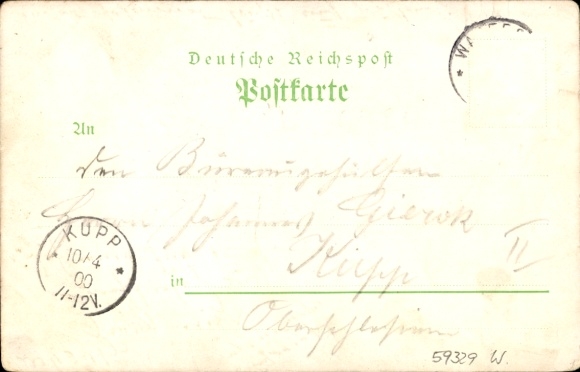 Deutsche Reichspost
Postkarte
An
den Bureaugehilfen
Herrn Johannes Gierok
in Kupp II
Oberschlesien
KUPP
10/4
00
11-12V.
59329 W.